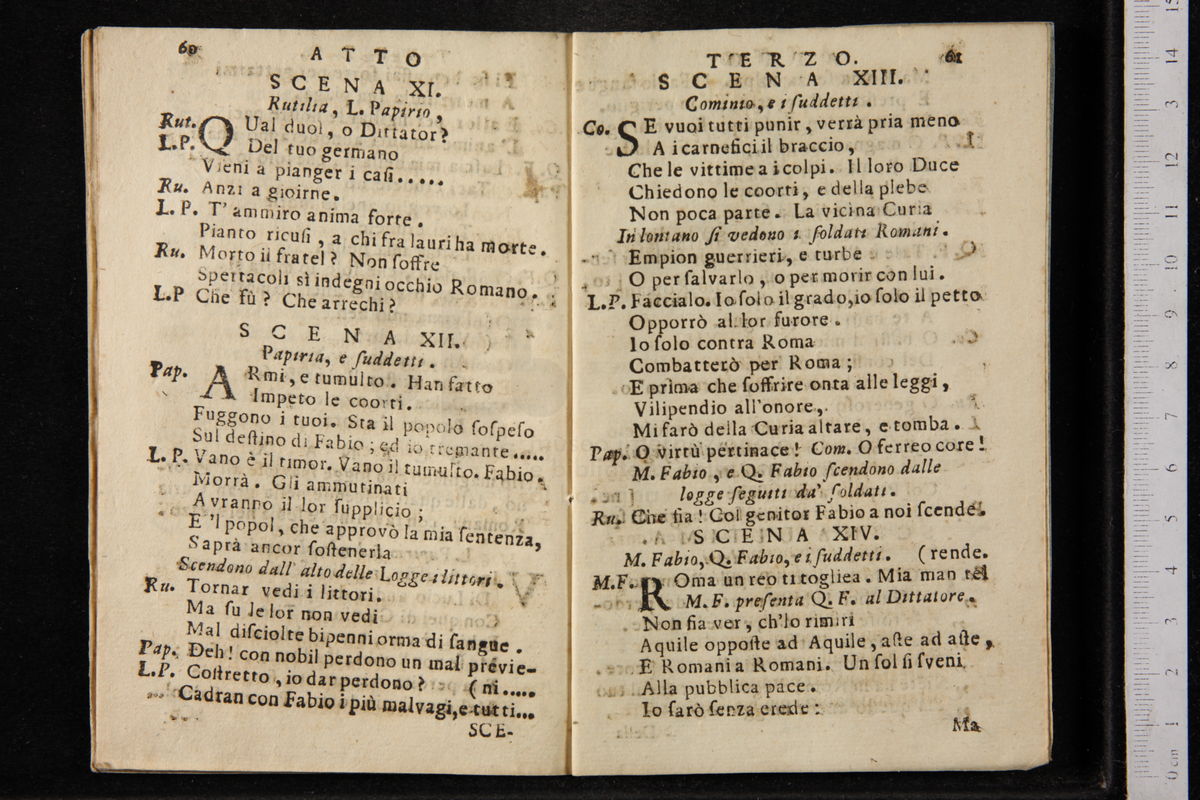 60
ATTO
SCENA XI.
Rutilia, L. Papirio,
Rut. QUal duol, o Dittator?
L.P. Del tuo germano
Vieni a pianger i caſi.....
Ru. Anzi a gioirne.
L. P. T' ammiro anima forte.
Pianto ricuſi, a chi fra lauri ha morte.
Ru. Morto il fratel? Non ſoffre
Spettacoli sì indegni occhio Romano.
L.P Che fù? Che arrechi?
SCENA XII.
Papiria, e ſuddetti.
Pap. ARmi, e tumulto. Han fatto
Impeto le coorti.
Fuggono i tuoi. Sta il popolo ſoſpeſo
Sul deſtino di Fabio; ed io tremante.....
L. P. Vano è il timor. Vano il tumulto. Fabio
Morrà. Gli ammutinati
Avranno il lor ſupplicio;
E 'l popol, che approvò la mia ſentenza,
Saprà ancor ſoſtenerla
Scendono dall' alto delle Logge i littori.
Ru. Tornar vedi i littori.
Ma ſu le lor non vedi
Mal diſciolte bipenni orma di ſangue.
Pap. Deh! con nobil perdono un mal previe-
L.P. Coſtretto, io dar perdono? (ni.....
Cadran con Fabio i più malvagi, e tutti...
SCE-
TERZO. 61
SCENA XIII.
Cominio, e i ſuddetti.
Co. SE vuoi tutti punir, verrà pria meno
A i carnefici il braccio,
Che le vittime a i colpi. Il loro Duce
Chiedono le coorti, e della plebe
Non poca parte. La vicina Curia
In lontano ſi vedono i ſoldati Romani.
Empion guerrieri, e turbe
O per ſalvarlo, o per morir con lui.
L.P. Faccialo. Io ſolo il grado, io ſolo il petto
Opporrò al lor furore.
Io ſolo contra Roma
Combatterò per Roma;
E prima che ſoffrire onta alle leggi,
Vilipendio all'onore,
Mi farò della Curia altare, e tomba.
Pap. O virtù pertinace! Com. O ferreo core!
M. Fabio, e Q. Fabio ſcendono dalle
logge ſeguiti da' ſoldati.
Ru. Che fia! Col genitor Fabio a noi ſcende.
SCENA XIV.
M. Fabio, Q. Fabio, e i ſuddetti. (rende.
M.F. ROma un reo ti togliea. Mia man tel
M. F. preſenta Q. F. al Dittatore.
Non fia ver, ch'lo rimiri
Aquile oppoſte ad Aquile, aſte ad aſte,
E Romani a Romani. Un ſol ſi ſveni
Alla pubblica pace.
Io ſarò ſenza erede:
Ma